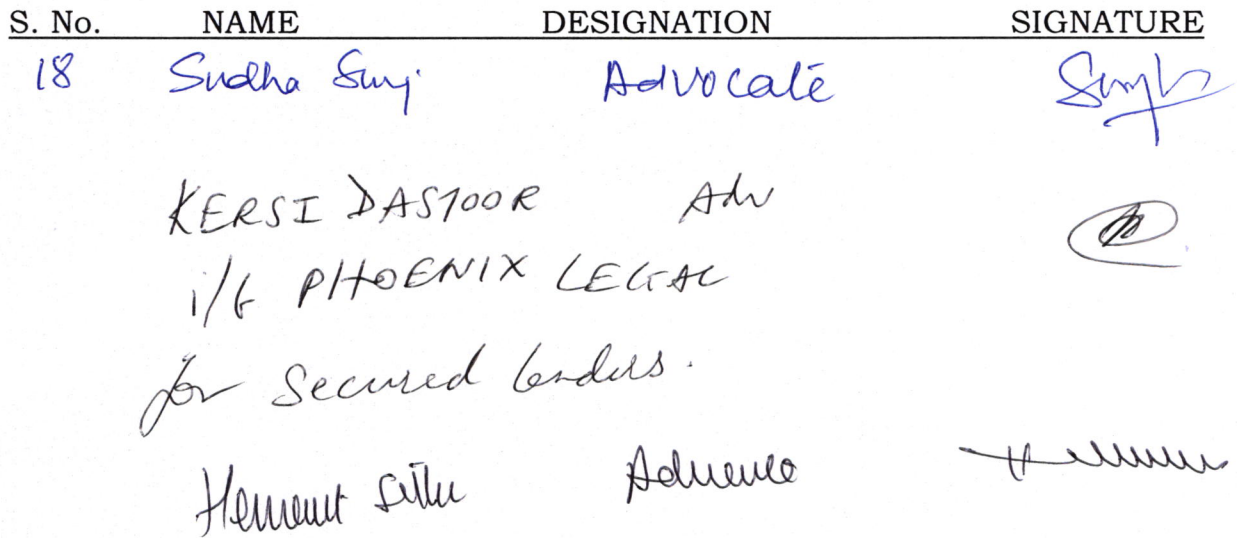 S. No. NAME DESIGNATION SIGNATURE
18 Sudha Advocate
KERSI DASTOOR Adv
i/b PHOENIX LEGAL
for Secured lenders.
Hemant